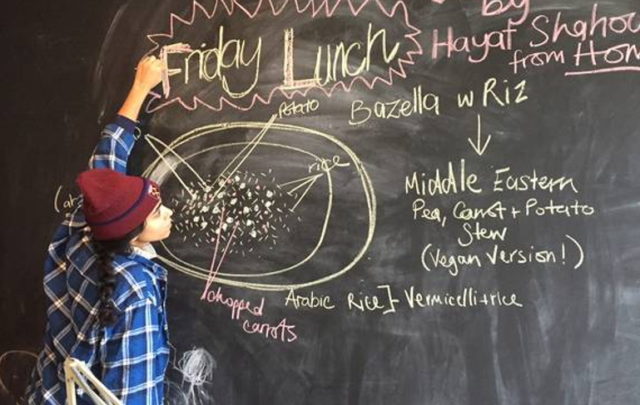 by
Friday Lunch
Hayat Shahoo
from Hom
Potato
Bazella w Riz
rice
Middle Eastern
Pea, Carrot + Potato
Stew
(Vegan Version!)
Arabic Rice] Vermicelli + rice
chopped
carrots